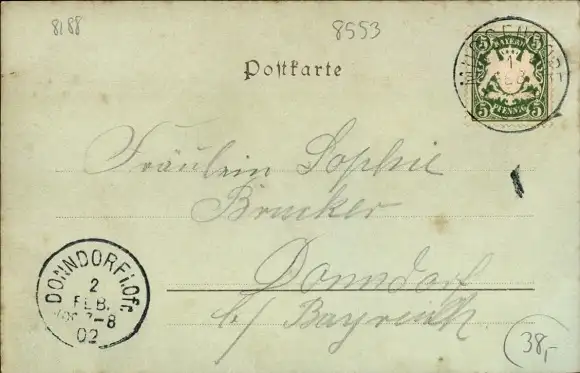 8188
8553
Postkarte
5 BAYERN 5
5 PFENNIG 5
1
FEB
Fräulein Sophie
Brucker
Donndorf
b/ Bayreuth
DONNDORF i.Ofr.
2
FEB.
7-8
02
38,-